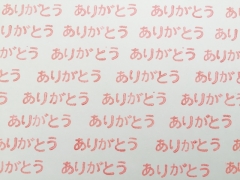 ありがとう ありがとう ありがとう ありがとう
ありがとう ありがとう ありがとう
ありがとう ありがとう ありがとう
ありがとう ありがとう ありがとう
ありがとう ありがとう ありがとう
ありがとう ありがとう ありがとう
ありがとう ありがとう ありがとう
ありがとう ありがとう ありがとう